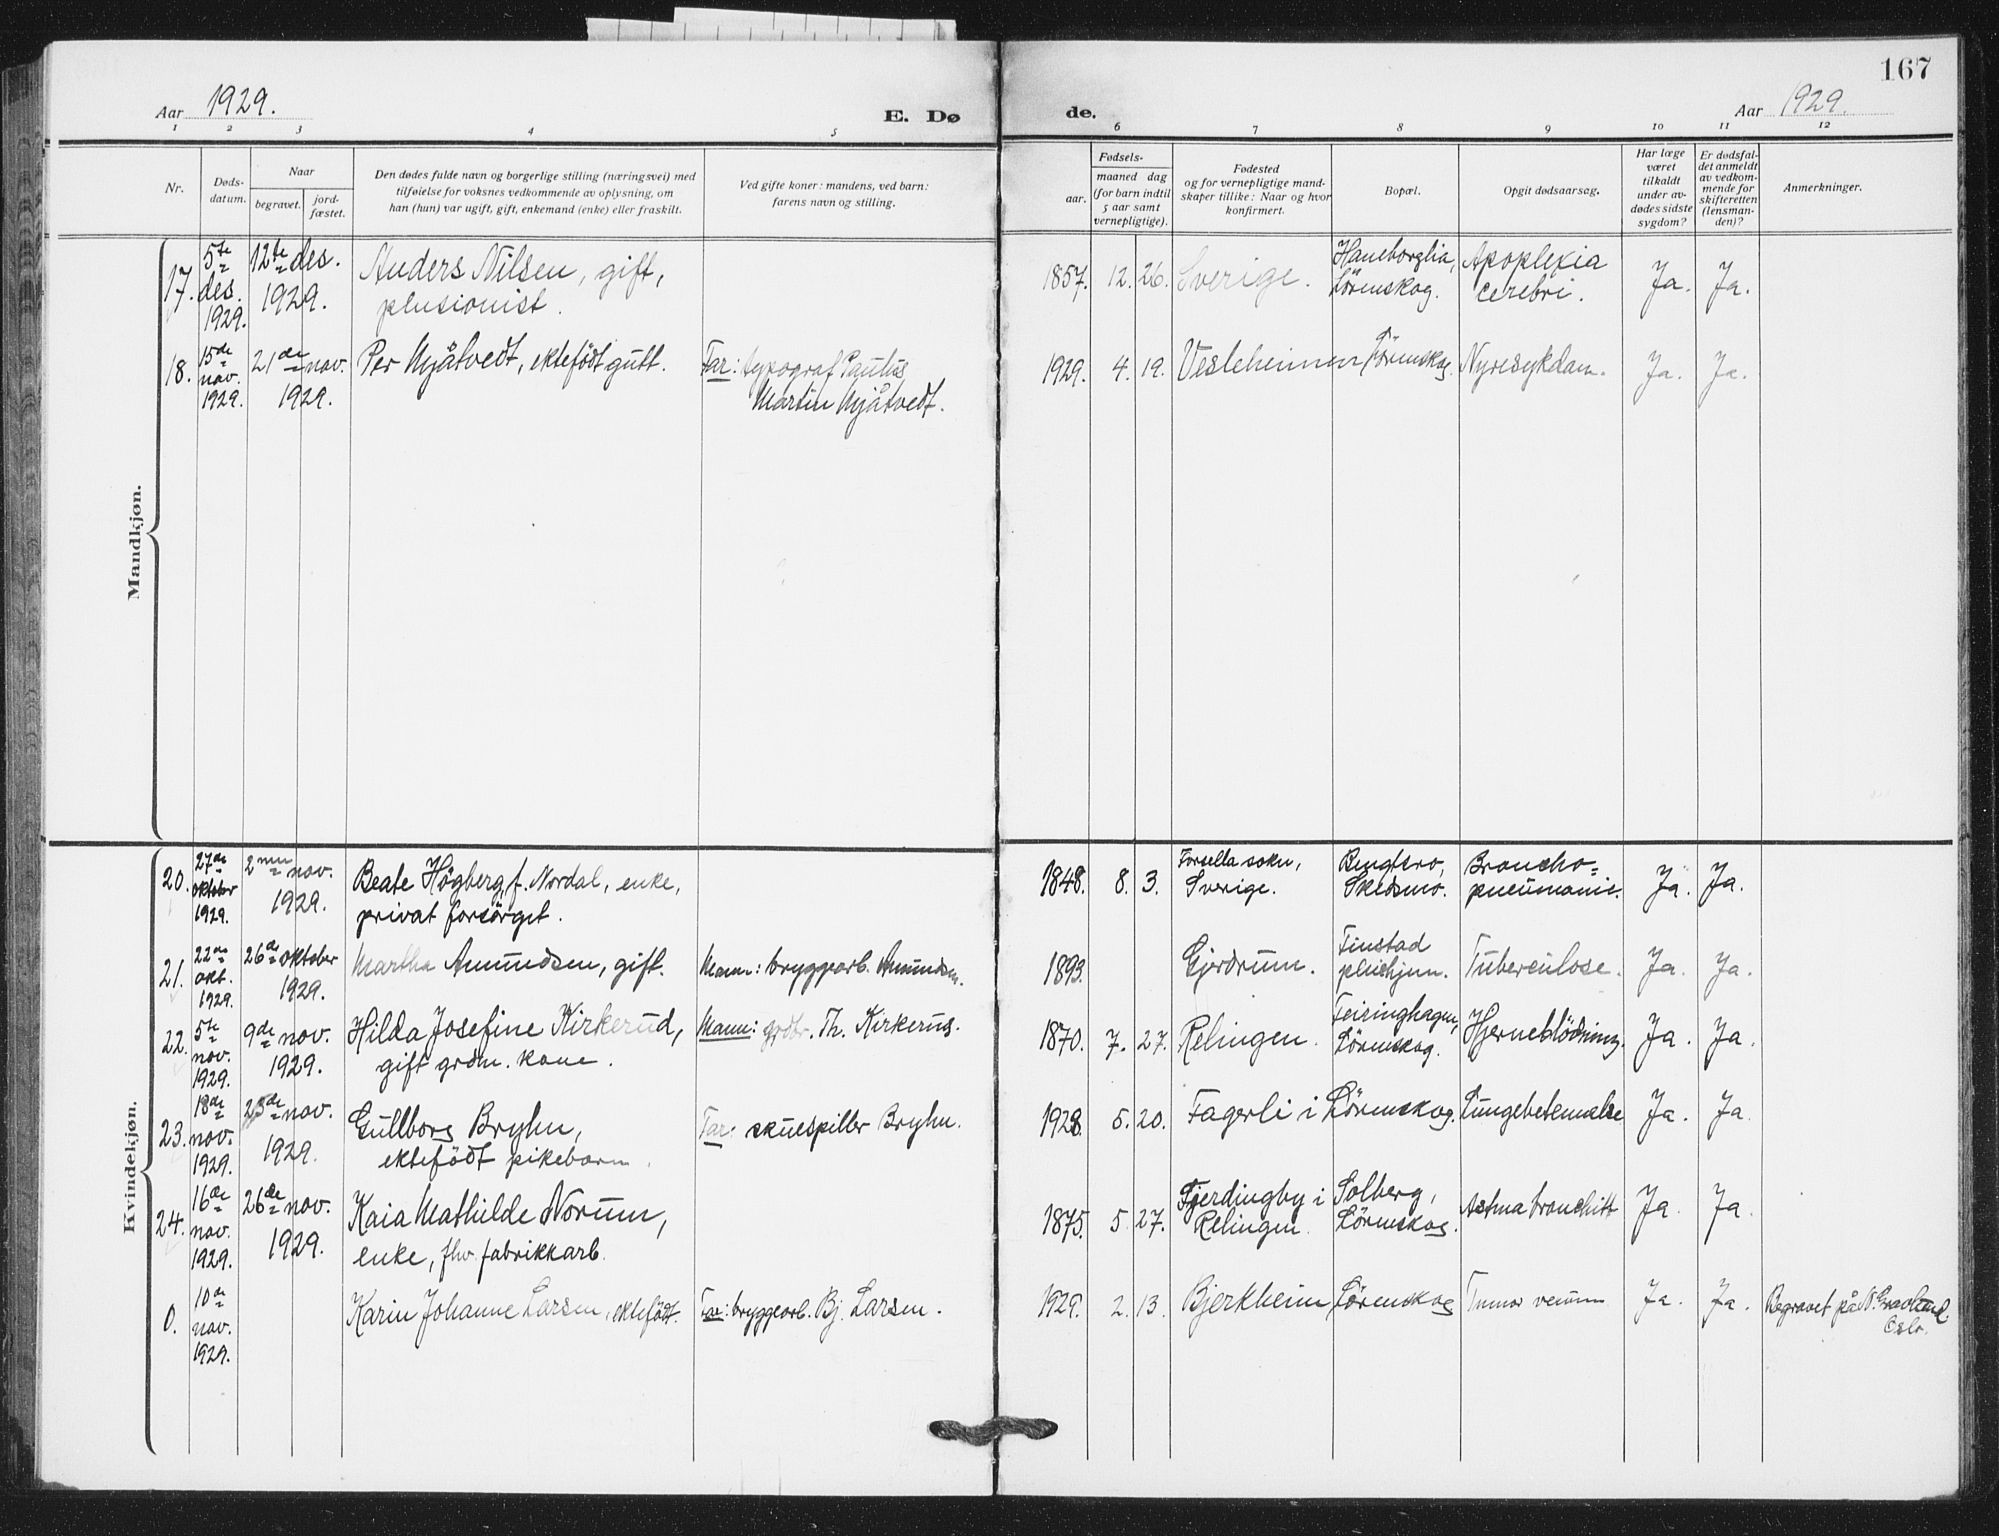 167
Aar 1929.
E. Dø
de.
Aar 1929.
1 2 3 4 5 6 7 8 9 10 11 12
Nr.
Døds-
datum.
Naar
begravet.
jord-
fæstet.
Den dødes fulde navn og borgerlige stilling (næringsvei) med
tilføielse for voksnes vedkommende av oplysning, om
han (hun) var ugift, gift, enkemand (enke) eller fraskilt.
Ved gifte koner: mandens, ved barn:
farens navn og stilling.
Fødsels-
aar.
maaned dag
(for barn indtil
5 aar samt
vernepligtige).
Fødested
og for vernepligtige mand-
skaper tillike: Naar og hvor
konfirmert.
Bopæl.
Opgit dødsaarsag.
Har læge
været
tilkaldt
under av-
dødes sidste
sygdom?
Er dødsfal-
det anmeldt
av vedkom-
mende for
skifteretten
(lensman-
den)?
Anmerkninger.
Mandkjøn.
17.
5te
des.
1929.
12te des.
1929.
Anders Nilsen, gift,
pensionist.
1857. 12. 26.
Sverige.
Haneborglia,
Lörenskog.
Apoplexia
cerebri.
Ja. Ja.
18.
15de
nov.
1929.
21de nov.
1929.
Per Myåtvedt, ektefödt gutt.
Far: typograf Paulus
Martin Myåtvedt.
1929. 4. 19.
Vesleheimen
Lörenskog.
Nyresykdom.
Ja. Ja.
Kvindekjøn.
20.
27de
oktober
1929.
2nen nov.
1929.
Beate Högberg f. Nordal, enke,
privat forsörget.
1848. 8. 3.
Forsella sokn,
Sverige.
Bengtsro,
Skedsmo.
Broncho=
pneumonie.
Ja. Ja.
21.
22de
okt.
1929.
26de oktober
1929.
Martha Amundsen, gift.
Mann: bryggearb. Amundsen.
1893.
Gjerdrum.
Finstad
pleiehjem.
Tuberculose.
Ja. Ja.
22.
5te
nov.
1929.
9de nov.
1929.
Hilda Josefine Kirkerud,
gift grdm. kone.
Mann: grdbr. Th. Kirkerud.
1870. 7. 27.
Relingen.
Feiringhagen,
Lörenskog.
Hjerneblödning.
Ja. Ja.
23.
18de
nov.
1929.
23de nov.
1929.
Gullborg Bryhn,
ektefödt pikebarn.
Far: skuespiller Bryhn.
1928. 5. 20.
Fagerli i
Lörenskog.
Lungebetennelse
Ja. Ja
24.
16de
nov.
1929.
26de nov.
1929.
Kaia Mathilde Norum,
enke, fhv. fabrikkarb.
1875. 5. 27.
Fjerdingby i
Relingen.
Solberg,
Lörenskog.
Astma bronchitt
Ja. Ja.
0.
10de
nov.
1929.
Karin Johanne Larsen, ektefödt.
Far: bryggearb. Bj. Larsen.
1929. 2. 13.
Bjerkheim
Lörenskog
Tumor
Ja. Ja.
Begravet på N. Gravlund
Oslo.